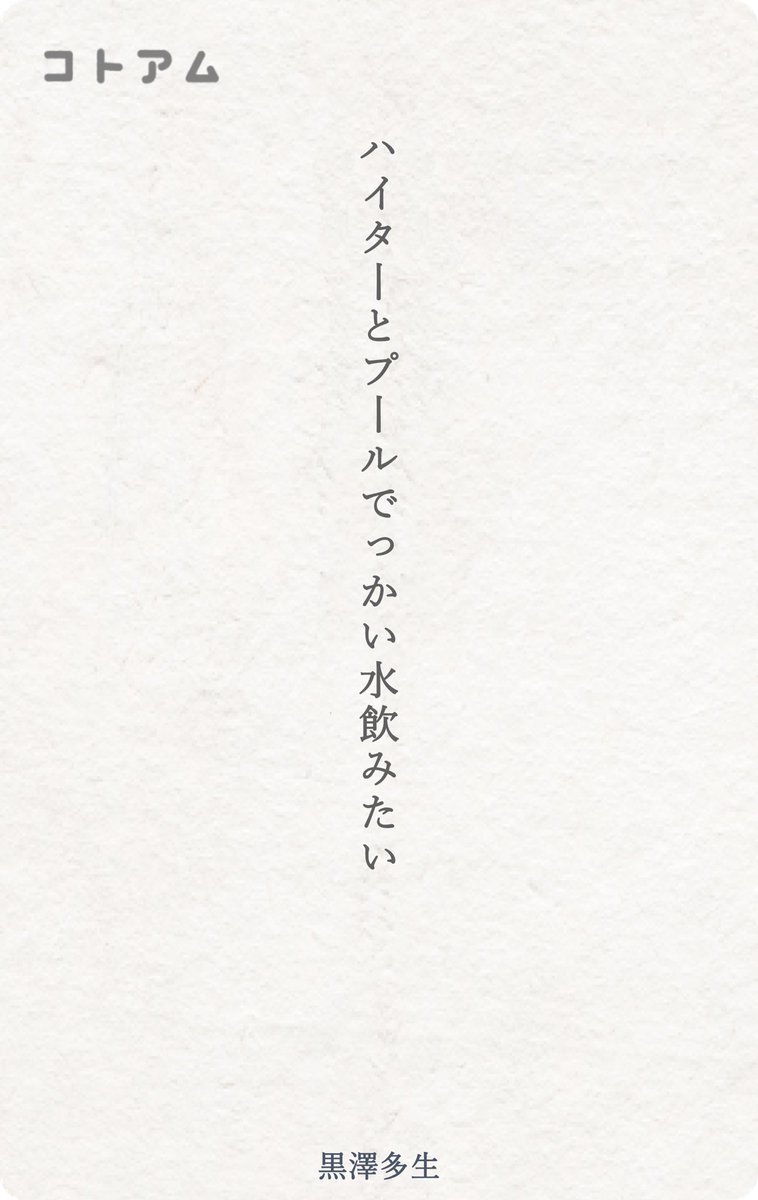 コトアム
ハイターとプールでっかい水飲みたい
黒澤多生